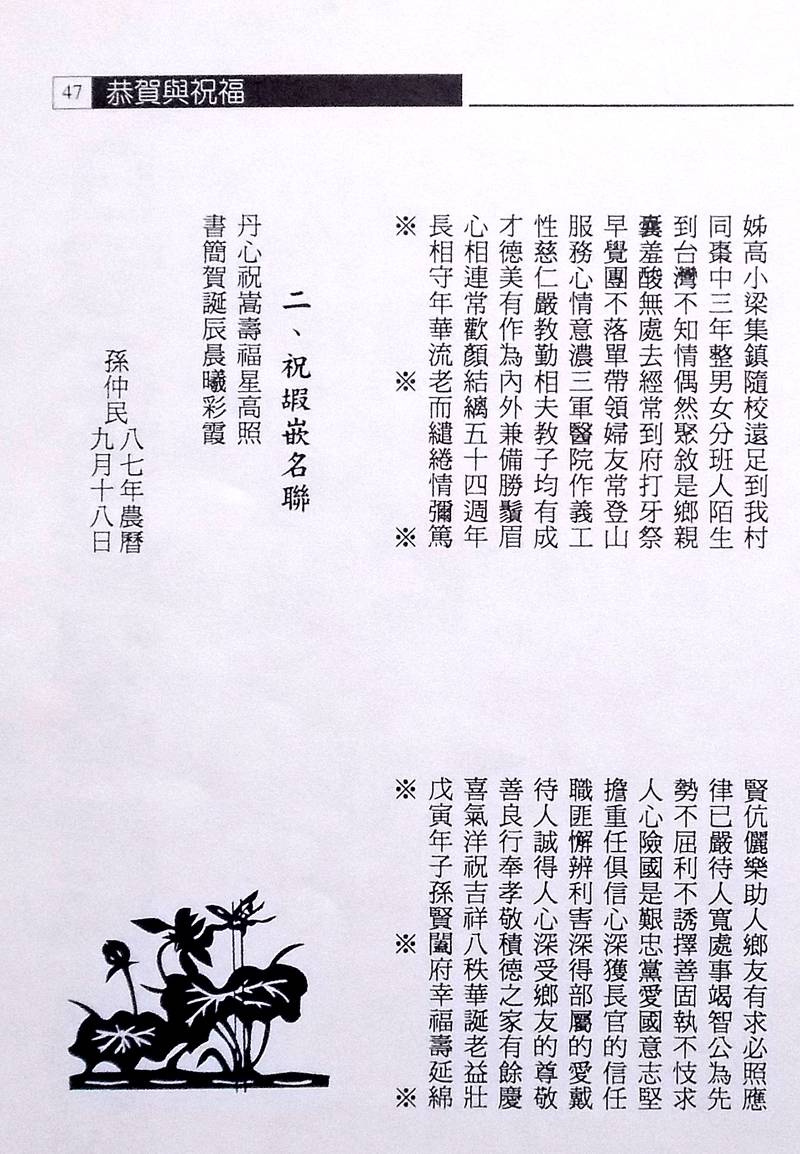 47 恭賀與祝福
姊高小梁集鎮隨校遠足到我村
同棗中三年整男女分班人陌生
到台灣不知情偶然聚敘是鄉親
囊羞酸無處去經常到府打牙祭
早覺團不落單帶領婦友常登山
服務心情意濃三軍醫院作義工
性慈仁嚴教勤相夫教子均有成
才德美有作為內外兼備勝鬚眉
心相連常歡顏結縭五十四週年
長相守年華流老而繾綣情彌篤
※ ※ ※
賢伉儷樂助人鄉友有求必照應
律已嚴待人寬處事竭智公為先
勢不屈利不誘擇善固執不忮求
人心險國是艱忠黨愛國意志堅
擔重任俱信心深獲長官的信任
職匪懈辨利害深得部屬的愛戴
待人誠得人心深受鄉友的尊敬
善良行奉孝敬積德之家有餘慶
喜氣洋祝吉祥八秩華誕老益壯
戊寅年子孫賢闔府幸福壽延綿
※ ※ ※
二、祝嘏嵌名聯
丹心祝嵩壽福星高照
書簡賀誕辰晨曦彩霞
孫仲民 八七年農曆
九月十八日